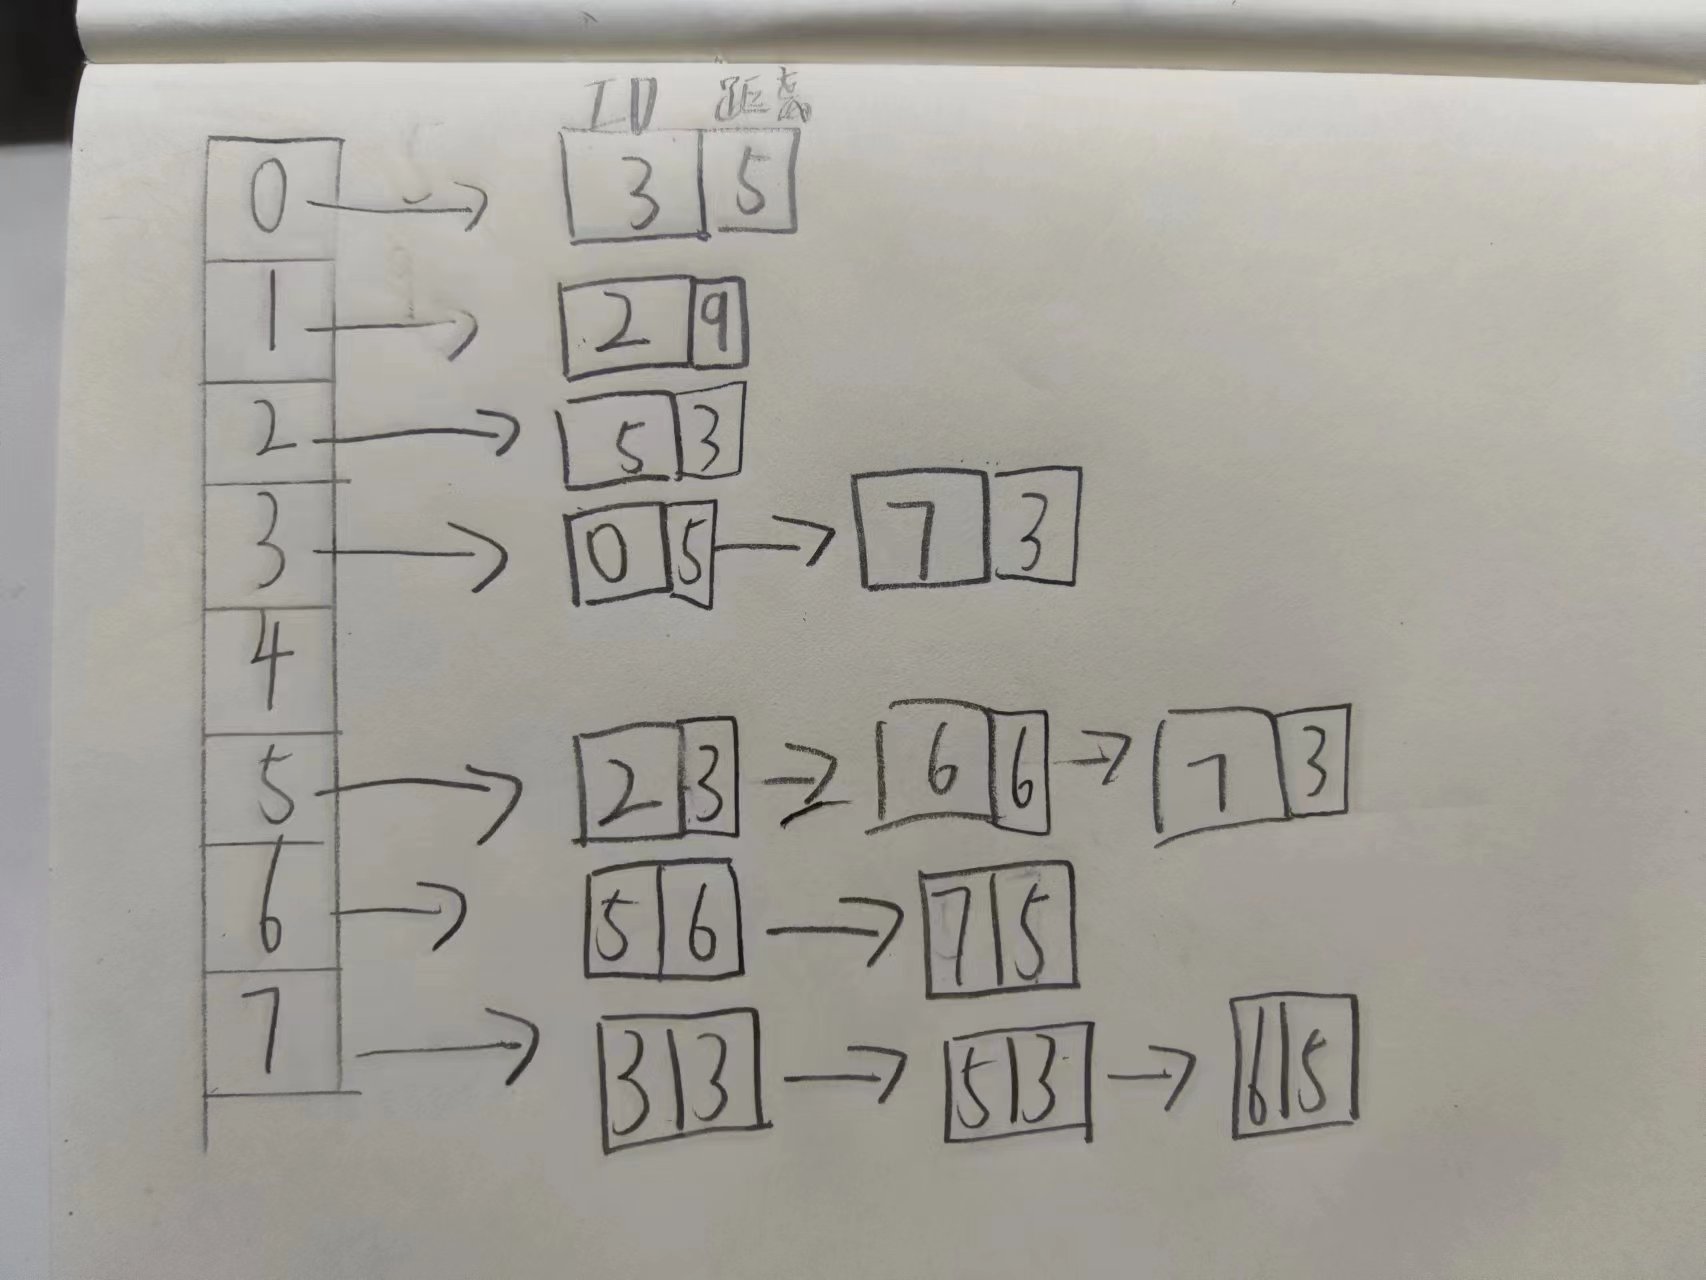 ID 距离
0 3 5
1 2 9
2 5 3
3 0 5 7 3
4
5 2 3 6 6 7 3
6 5 6 7 5
7 3 3 5 3 6 5